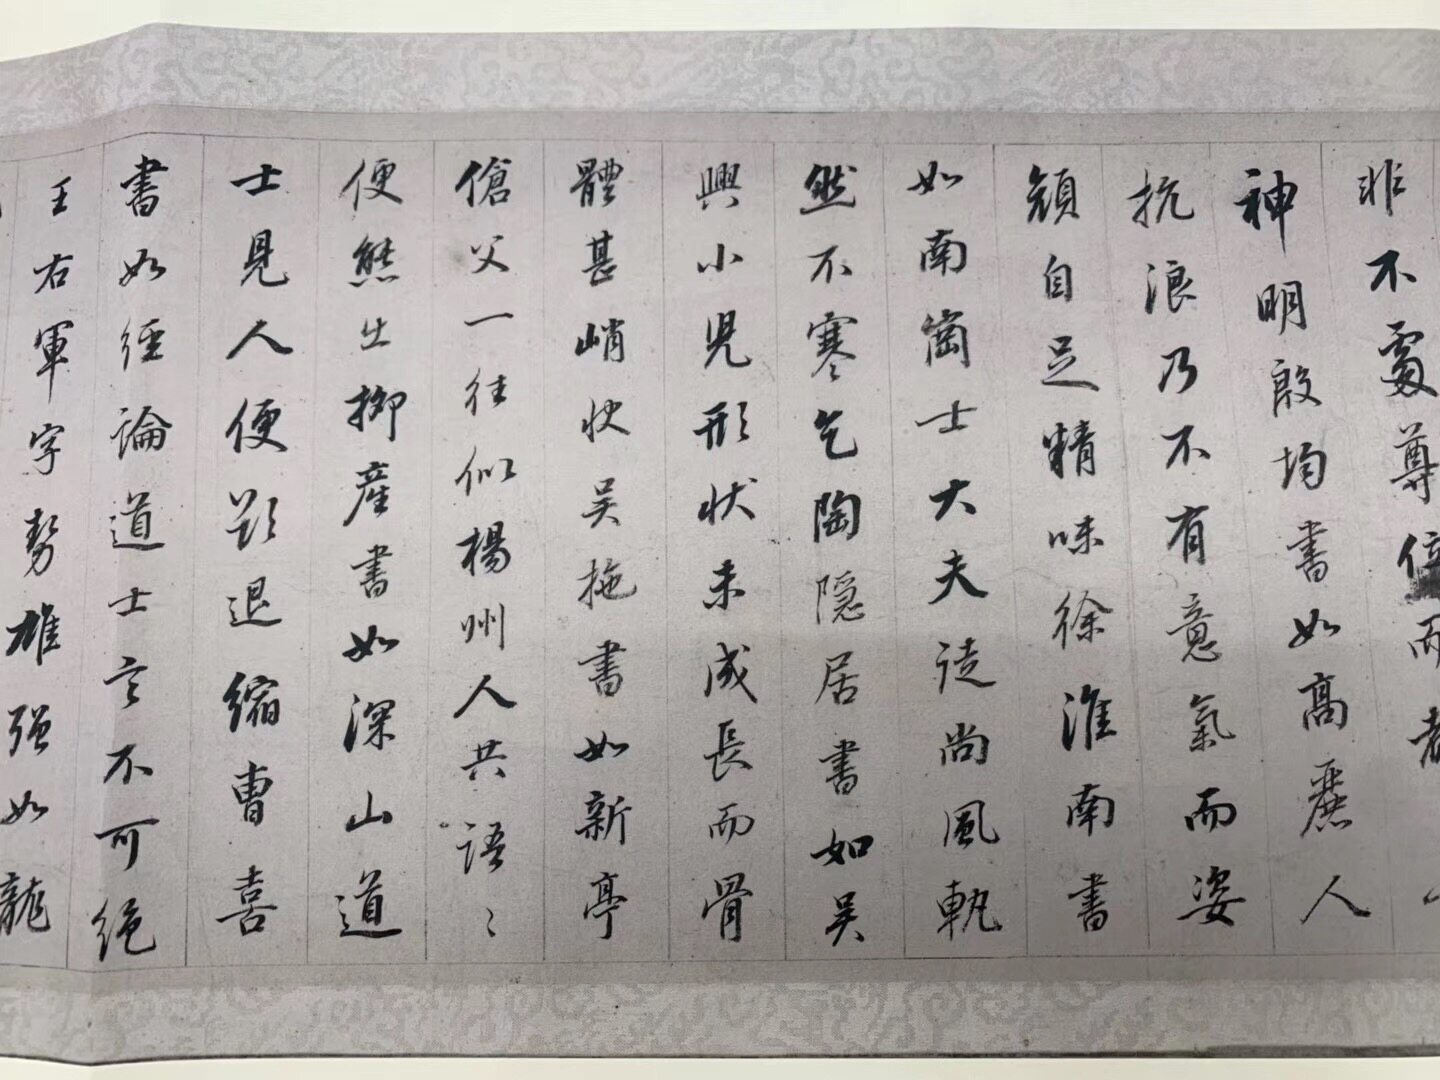 非不處尊位而都
神明殷均書如高麗人
抗浪乃不有意氣而姿
顏自足精味徐淮南書
如南崗士大夫徒尚風軌
然不寒乞陶隱居書如吳
興小兒形狀未成長而骨
體甚峭快吳拖書如新亭
傖父一往似楊州人共語〻
便態出柳產書如深山道
士見人便欲退縮曹喜
書如經論道士言不可絕
王右軍字勢雄強如龍